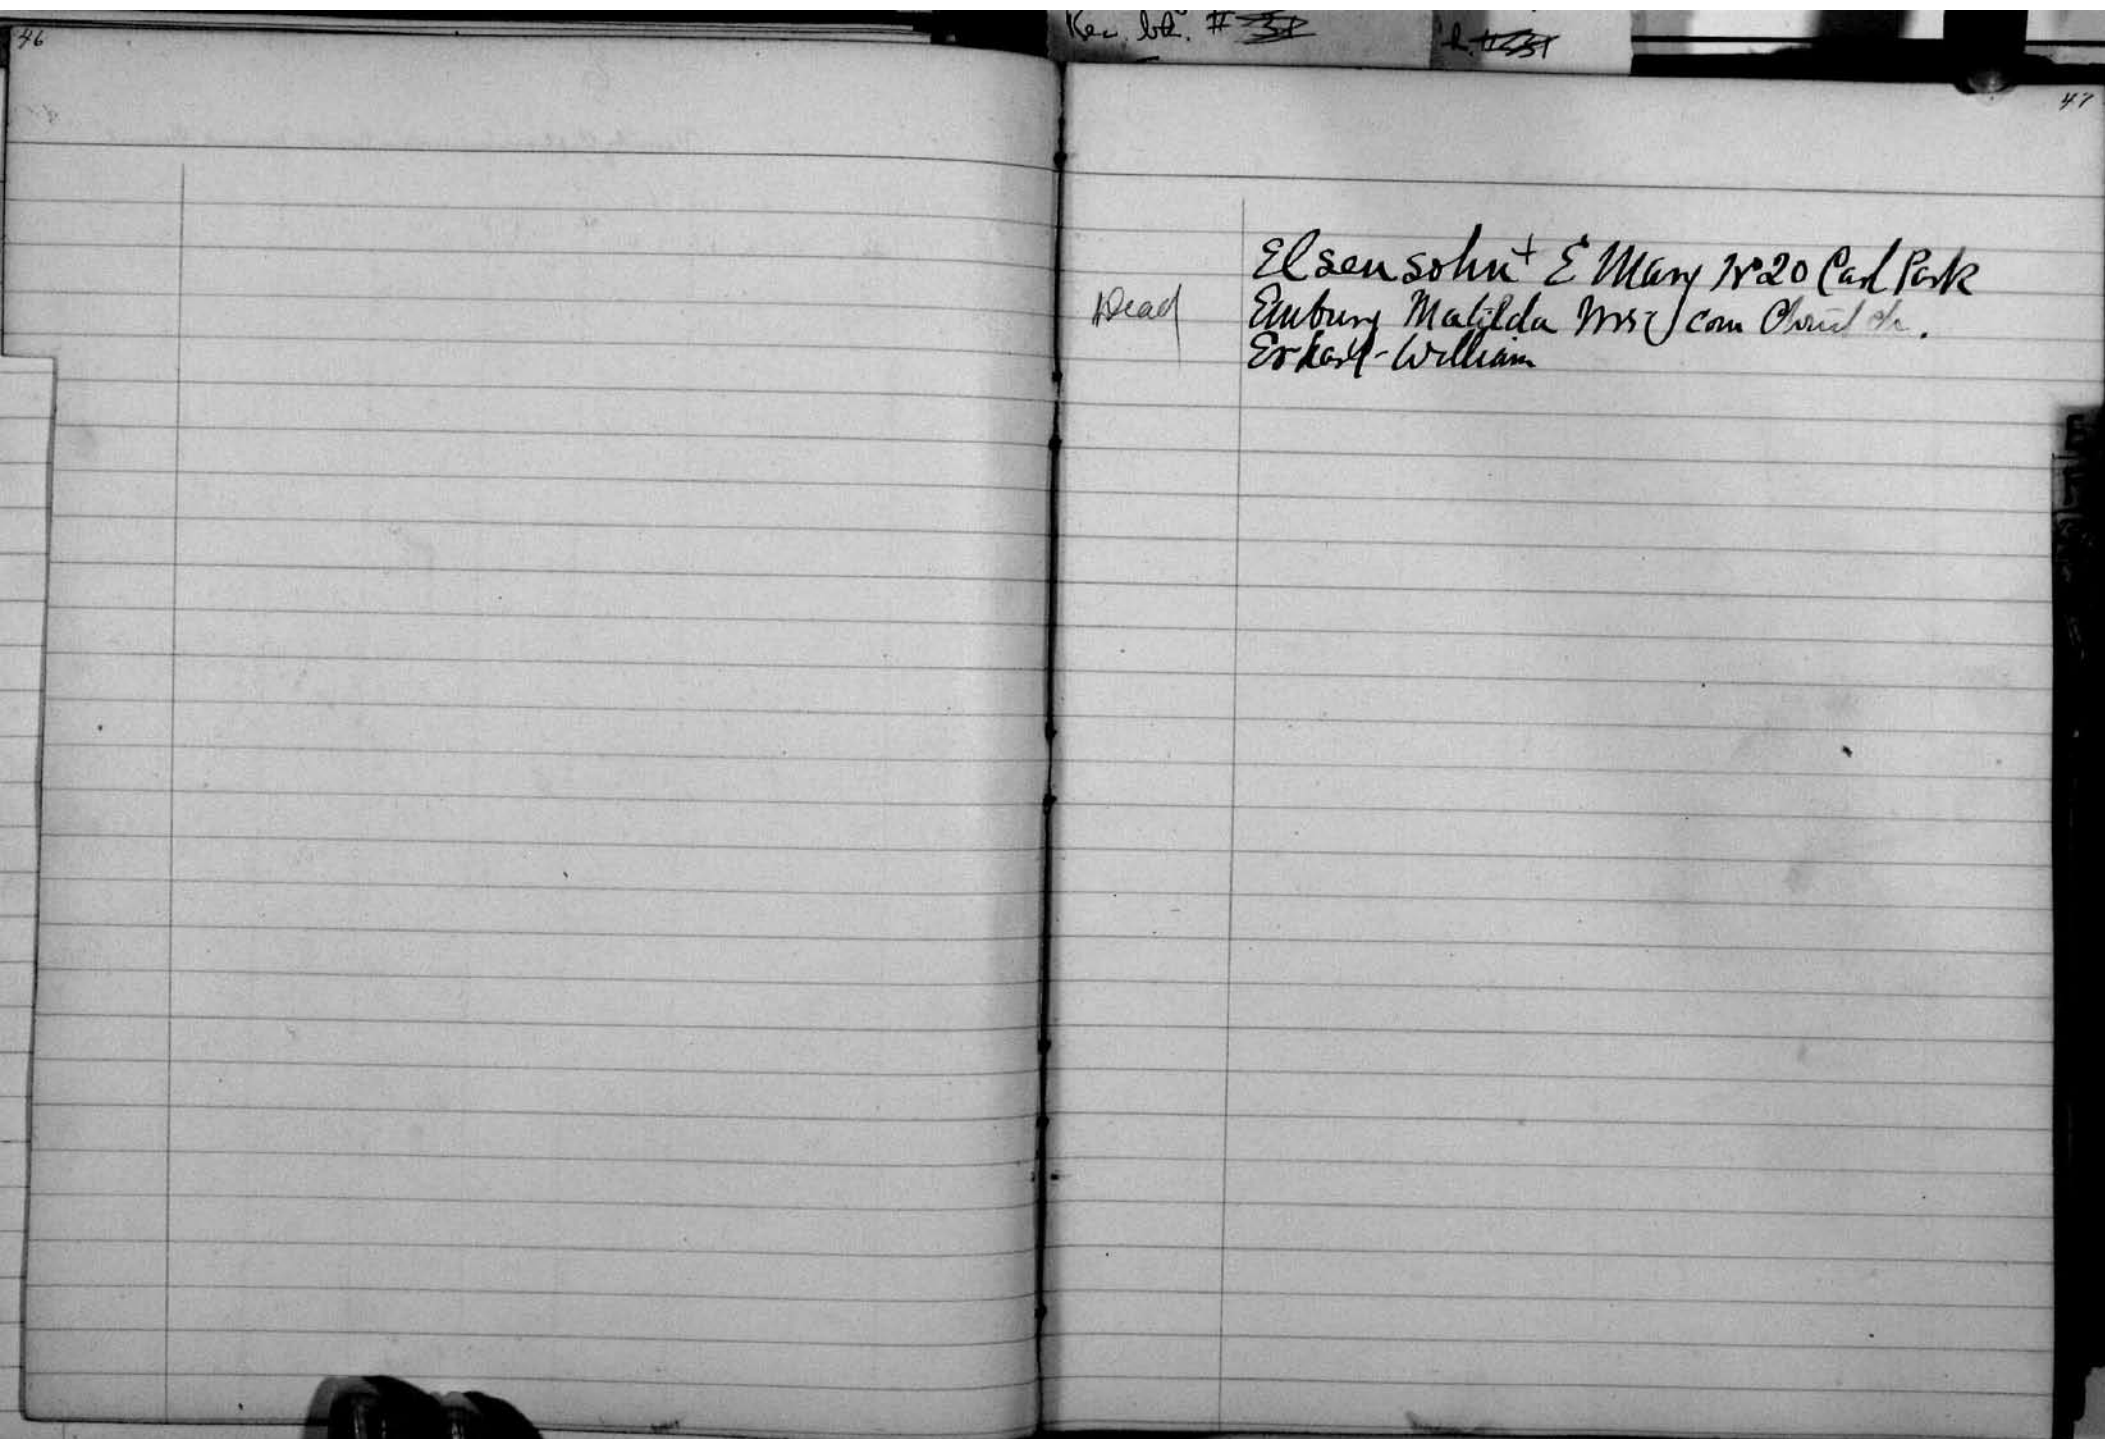 46
Rec. bk. #
47
Elsensohn + E Mary No 20 Park
Dead Embury Matilda Mrs com Christ ch.
William